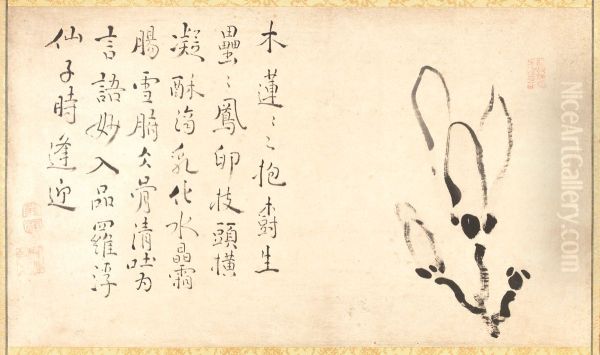 木蓮〻〻抱樹生
壘〻鳳卵枝頭橫
凝酥滴乳化水晶霜
腸雪腑仌骨清吐为
言語妙入品羅浮
仙子時逢迎
NiceArtGallery.com